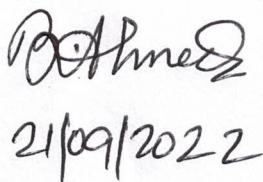 B. Ahmed
21/09/2022